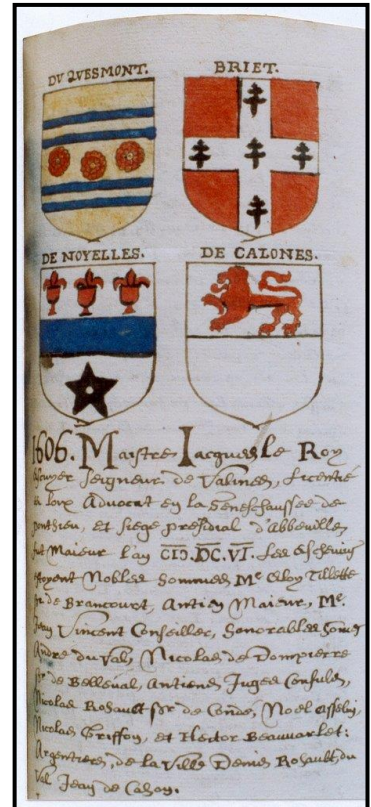 DV QVESMONT. BRIET.
DE NOYELLES. DE CALONES.
1606. Maistre Iacques le Roy
Escuyer Seigneur de Valines, Licentié
és loix Advocat en la Seneschaussee de
Ponthieu, et siege presidial d'Abbeville,
fut Maieur l'an CIↃ.DC.VI. Les Eschevins
estoyent Nobles hommes Me Eloy Tillette
sr de Brancourt, Antien Maieur, Me.
Jean Vincent Conseiller, honorables homes
Andre du Val, Nicolas de Dompierre
sr de Belleval, Antiens Juges Consules,
Nicolas Rohault sr de Condé, Noel Asselin,
Nicolas Griffon, et Hector Beauvarlet:
Argentiers, de la Ville Denis Rohault, du
Val Jean de Cahon.